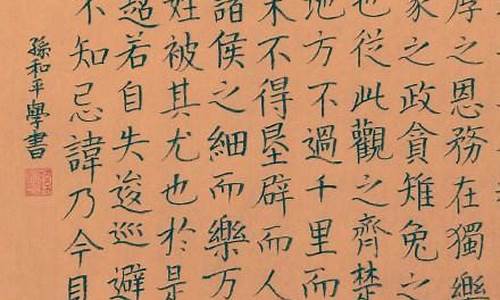 厚之恩務在獨樂
家之政貪雉兔之
也從此觀之齊楚
地方不過千里而
木不得墾辟而人
諸侯之細而樂万
姓被其尤也於是
超若自失逡巡避
不知忌諱乃今見
孫和平學書